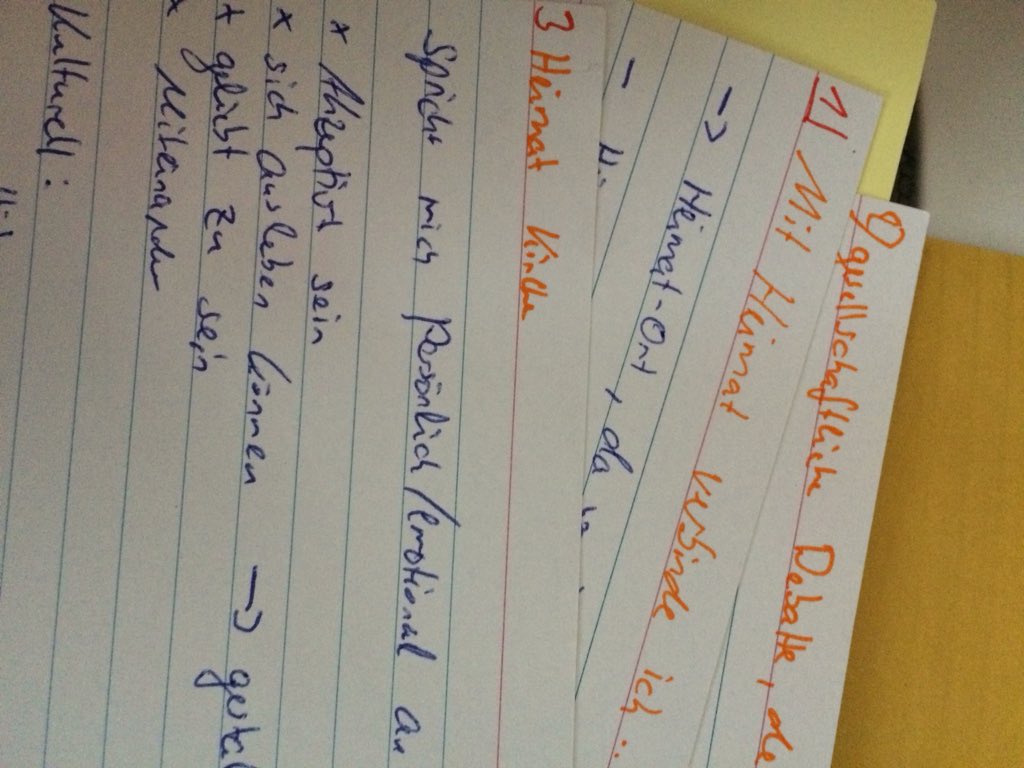 3 Heimat Kirche
Spricht mich persönlich/emotional an
x Akzeptiert sein
x sich ausleben können → gestal
+ geliebt zu sein
x Miteinander
Kulturell:
1) Mit Heimat verbinde ich:
→ Heimat-Ort, da
2) gesellschaftliche Debatte, die